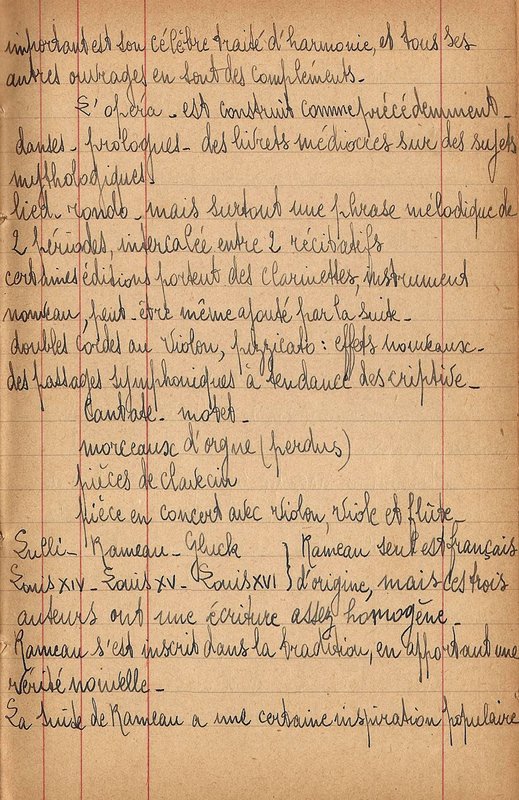 important est son célèbre traité d'harmonie, et tous ses
autres ouvrages en sont des compléments_
L'opéra_ est construit comme précédemment_
danses_ prologues_ des livrets médiocres sur des sujets
mythologiques
lied_ rondo_ mais surtout une phrase mélodique de
2 périodes, intercalée entre 2 récitatifs
certaines éditions portent des clarinettes, instrument
nouveau, peut-être même ajouté par la suite_
doubles cordes au violon, pizzicato : effets nouveaux_
des passages symphoniques à tendance descriptive_
Cantate_ motet_
morceaux d'orgue (perdus)
pièces de clavecin
pièce en concert avec violon, viole et flûte_
Lulli_ Rameau_ Gluck } Rameau seul est français
Louis XIV_ Louis XV_ Louis XVI } d'origine, mais ces trois
auteurs ont une écriture assez homogène_
Rameau s'est inscrit dans la tradition, en apportant une
vérité nouvelle_
La suite de Rameau a une certaine inspiration populaire